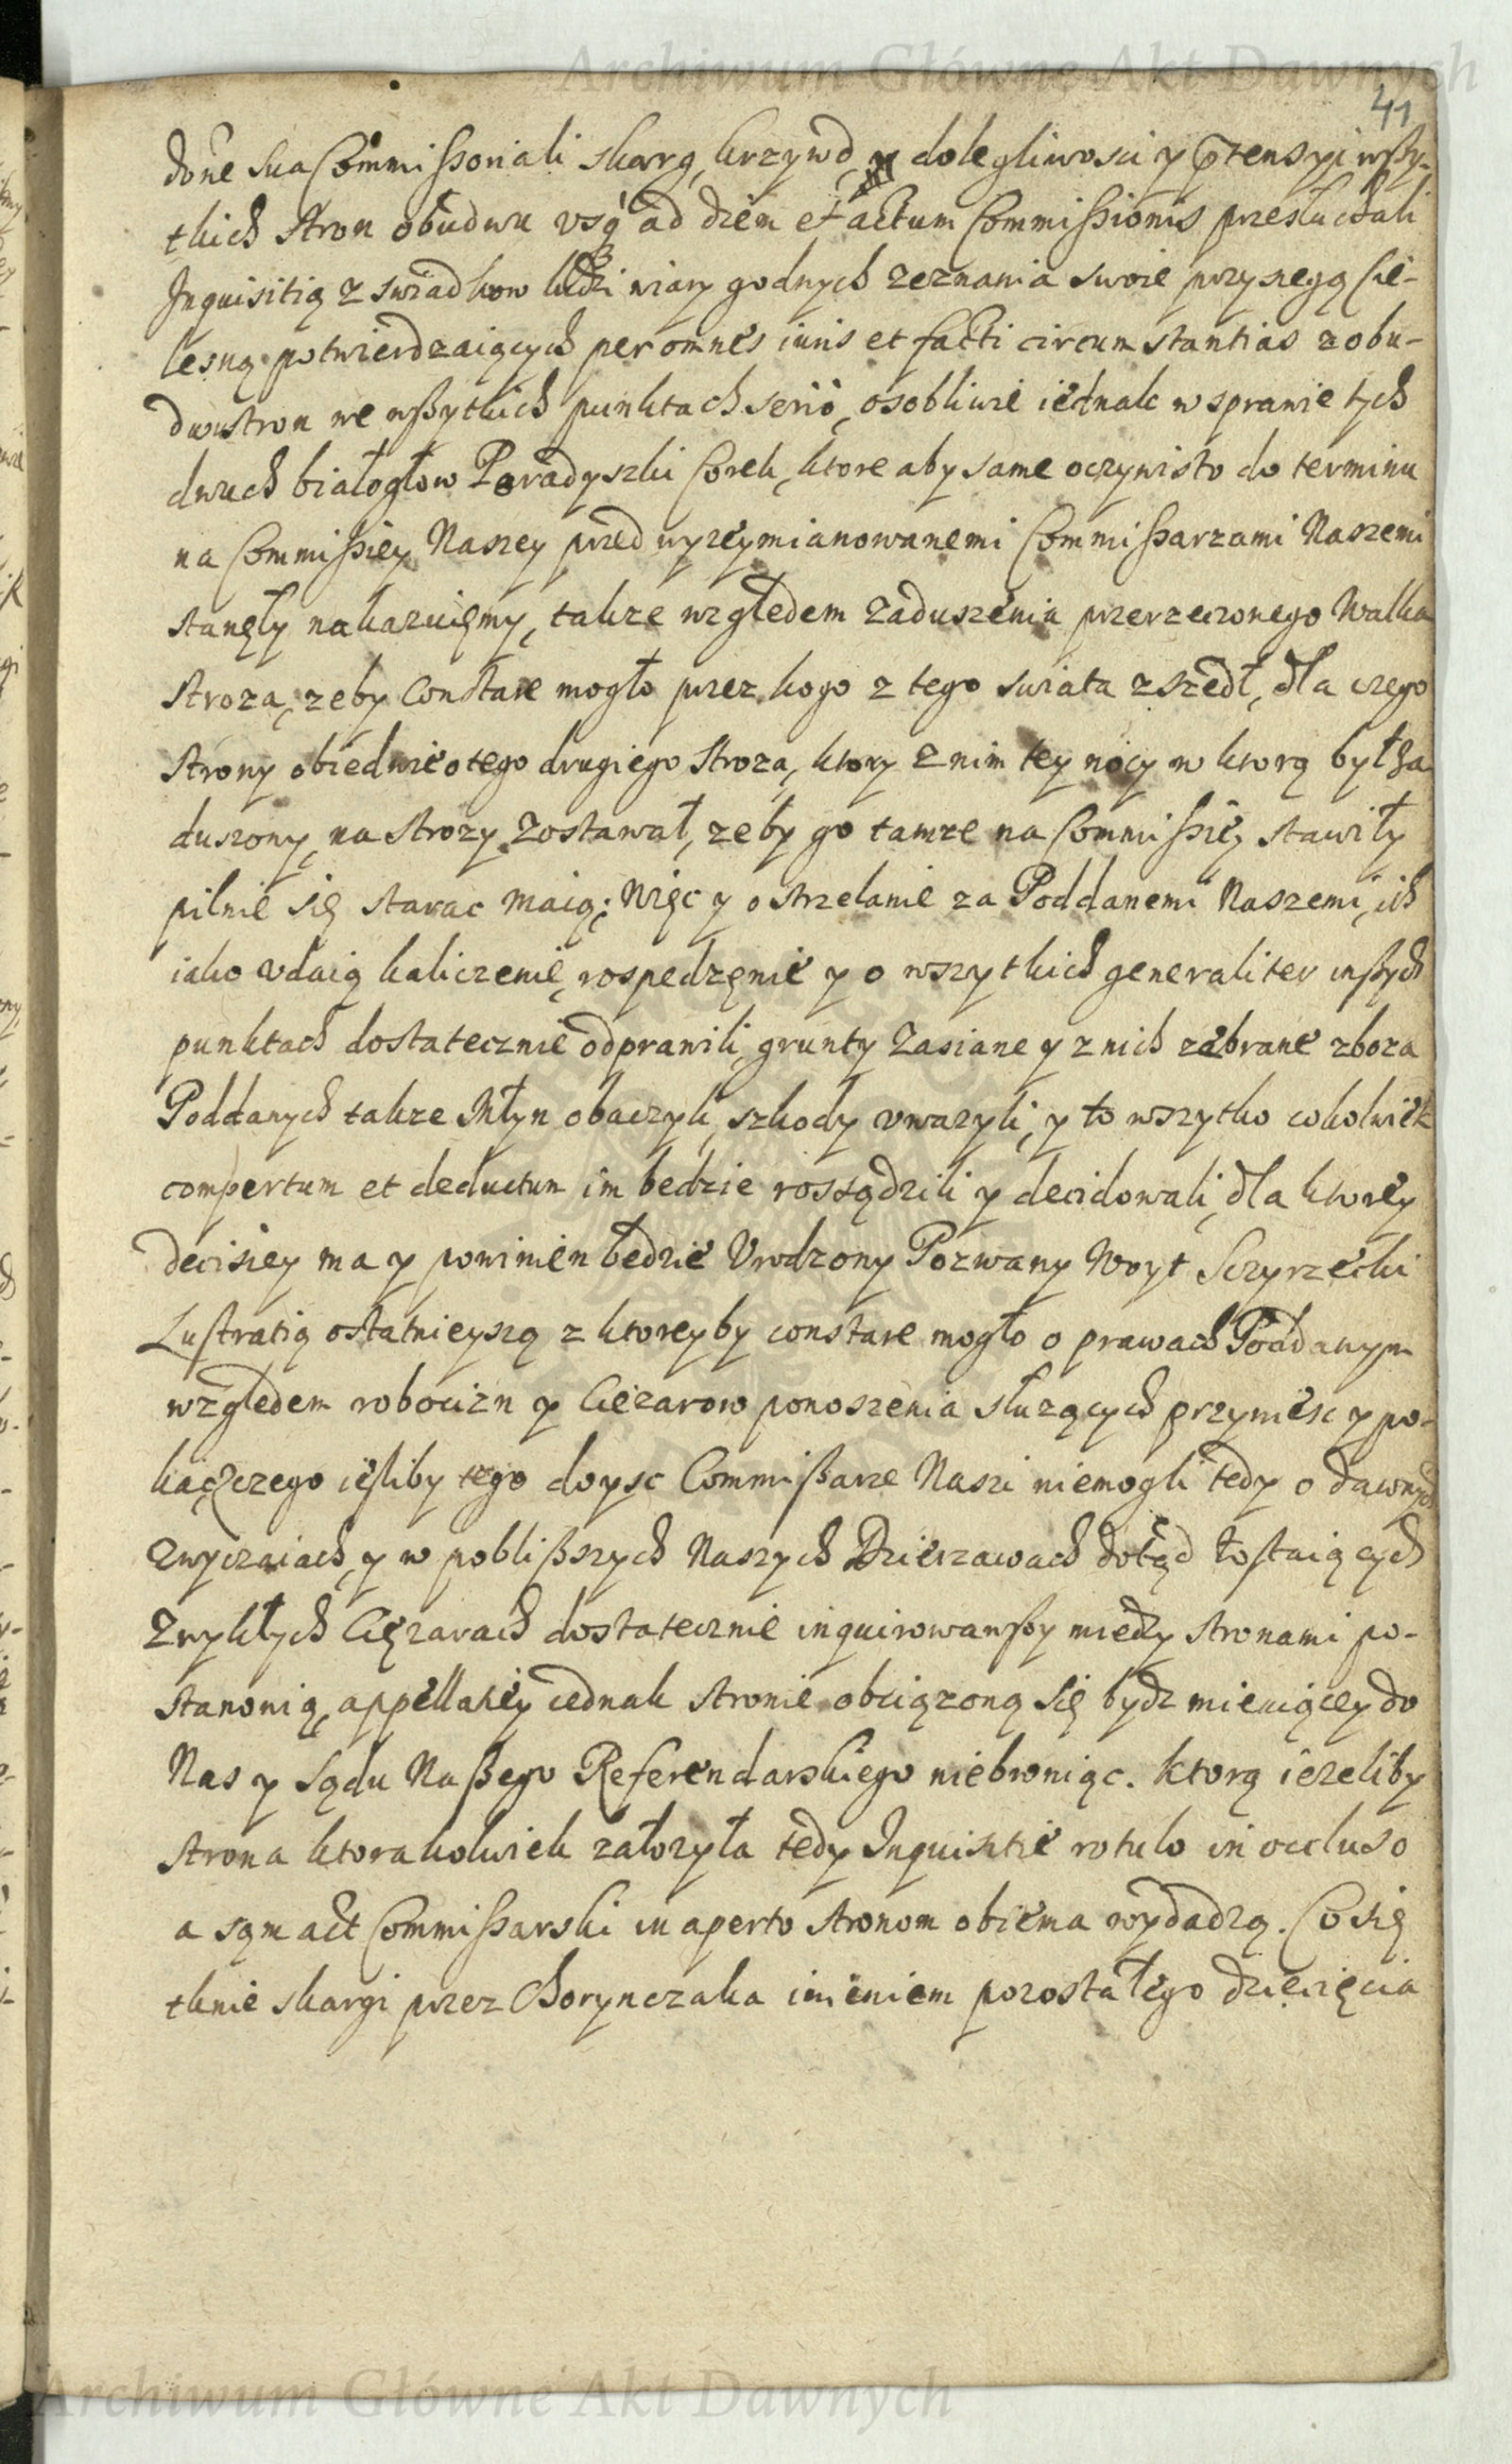 Archiwum Główne Akt Dawnych
41
done sua Commissoriali skarg, krzywd, y dolegliwosci y p̃tensyi wszy-
tkich stron obudwu vsq́ ad diem et actum Commissionis przesłuchali
Inquisitią z swiadkow ludzi wiary godnych zeznania swoie przysięgą Cie-
lesną potwierdzaiących per omnes iuris et facti circumstantias z obu-
dwu stron we wszytkich punktach serió, osobliwie iednak w sprawie tych
dwuch białogłow Paradyszki Corek, ktore aby same oczywisto do terminu
na Commissiey Naszey przed wyzeymianowanemi Commissarzami Naszemi
stanęły nakazuięmy, takze względem zaduszenia przerzeczonego Walka
stroza, zeby Constare mogło przez kogo z tego swiata zszedł, dla czego
strony obiedwie o tego drugiego stroza, ktory z nim tey nocy w ktorą był za-
duszony, na strozy zostawał, zeby go tamze na Commissię stawiły
pilnie się starac maią; Więc y o strzelanie za Poddanemi Naszemi, ich
iako vdaią kaliczenie, rospedzęnie y o wszytkich generaliter inszych
punktach dostatecznie odprawili, grunty zasiane y z nich zebrane zboza
Poddanych takze Młyn obaczyli, szkody vwazyli, y to wszytko cokolwiek
compertum et deductum im bedzie rossądzili y decidowali, dla ktorey
decisiey ma y powinien będzie Vrodzony Pozwany Woyt Sczyrzecki
Lustratią ostatnieyszą z ktoreyby constare mogło o prawach Poddanym
względem robocizn y Ciezarow ponoszenia słuzących przyniesc y po-
kaczczego iesliby tego doysc Commissarze Naszi niemogli tedy o dawnych
zwyczaiach, y w poblisszych Naszych Dzierzawach dotąd zostaiących
zwykłych Cięzarach dostatecznie inquirowawszy między stronami po-
stanowią, appellatiey iednak stronie obciązoną się bydz mieniącey do
Nas y Sądu Naszego Referendarskiego niebroniąc. ktorą iezeliby
strona ktorakolwiek załozyła tedy Inquisitie rotulo in occluso
a sąm act Commissarski in aperto stronom obiema wydadzą. Co się
tknie skargi przez Chorynczaka imieniem pozostałego dziecięcia
Archiwum Główne Akt Dawnych